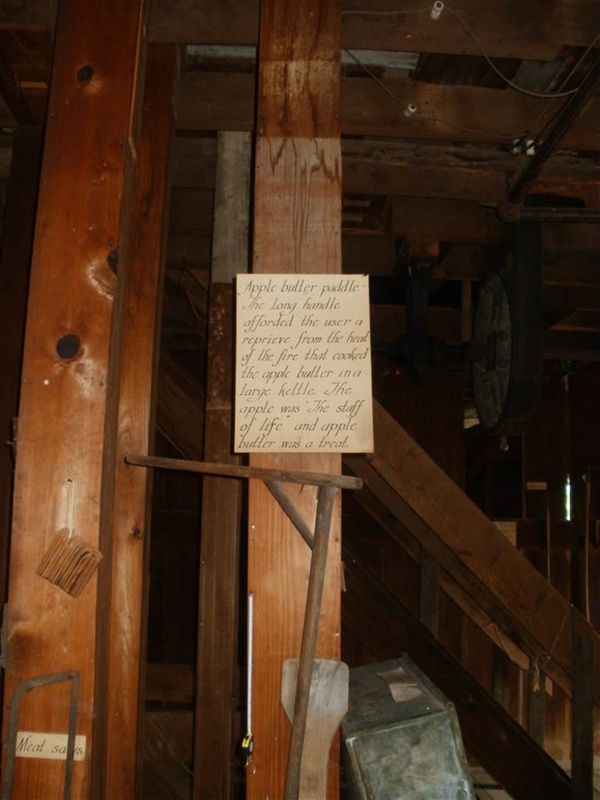 Apple butter paddle-
The long handle
afforded the user a
reprieve from the heat
of the fire that cooked
the apple butter in a
large kettle. The
apple was "The staff
of life" and apple
butter was a treat.
Meat saws